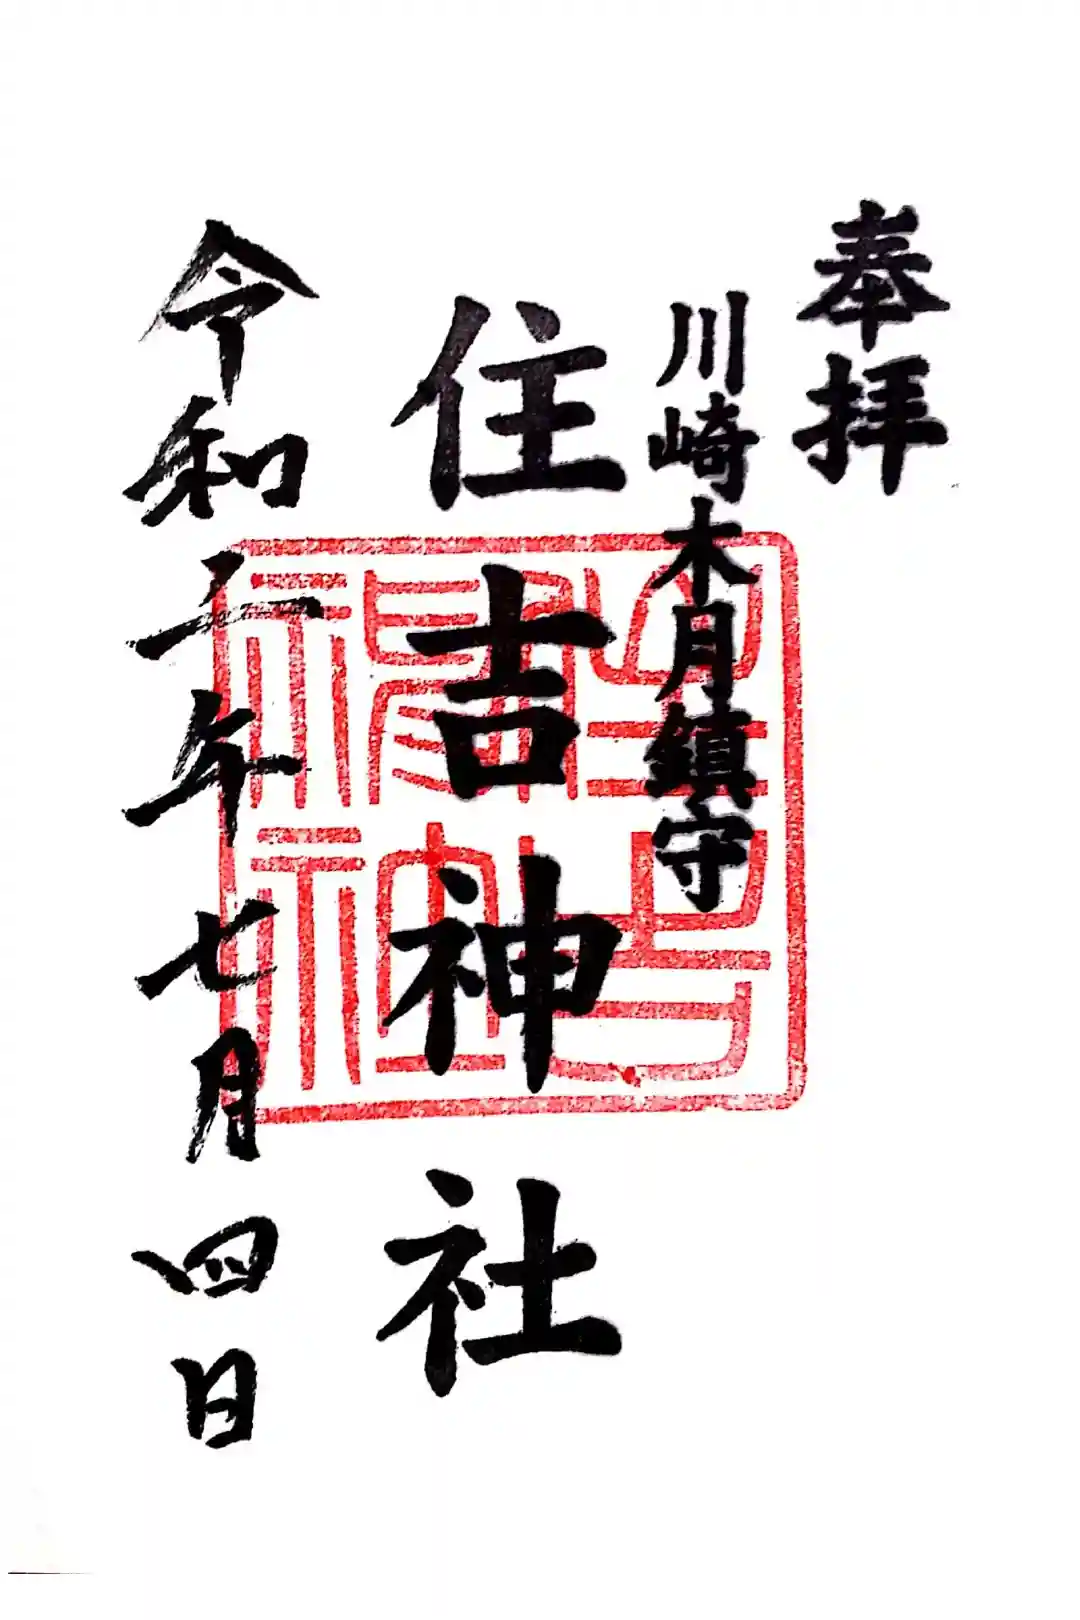 奉拝
川崎木月鎮守
住吉神社
令和三年七月四日
住吉
神社